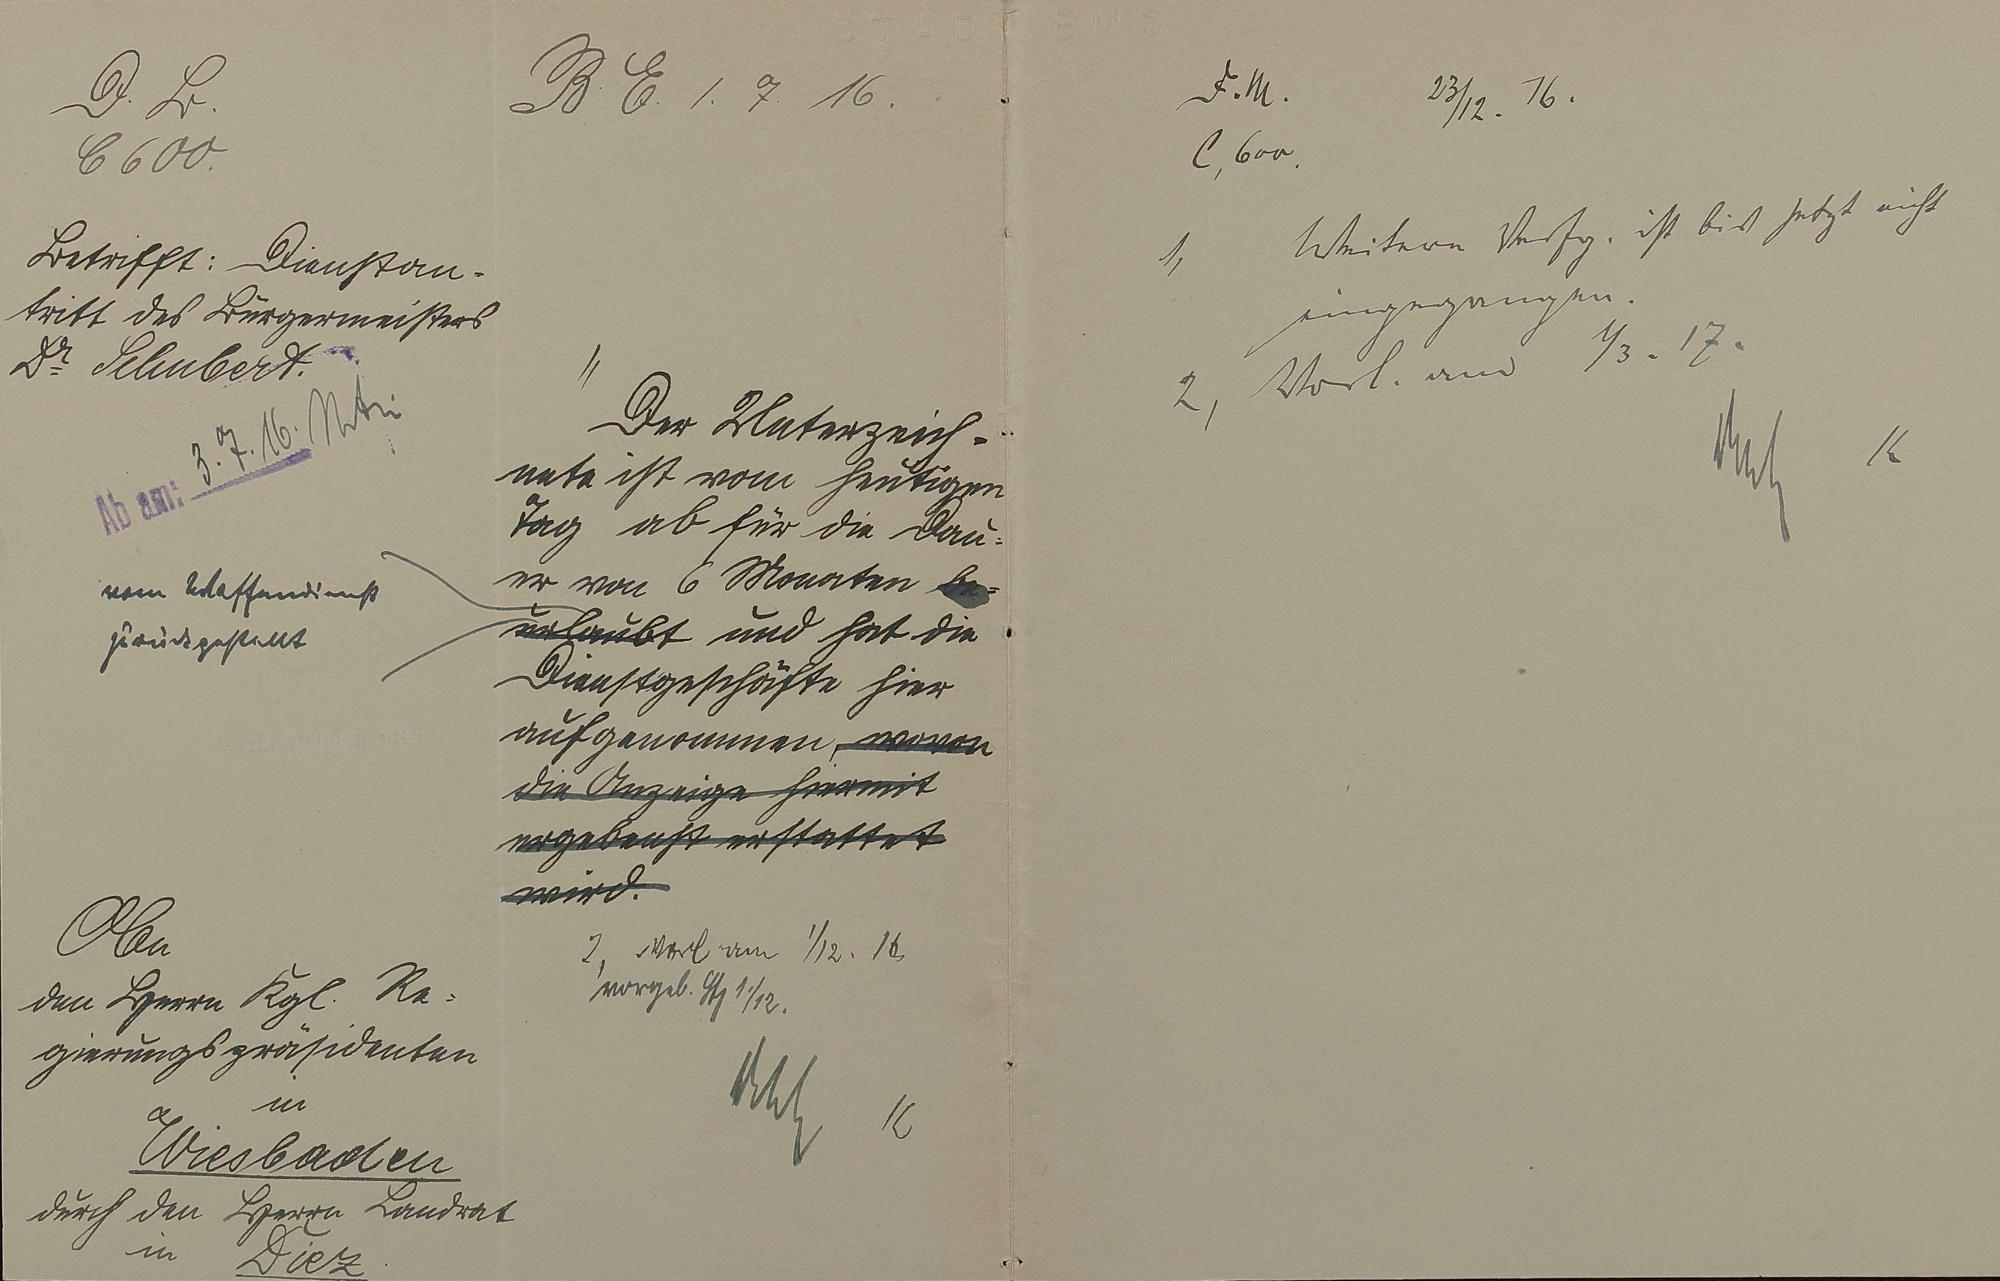 D. B.
C 600.
B. E. 1. 7. 16.
Betrifft: Dienstan-
tritt des Bürgermeisters
Dr. Schubert.
Ab am: 3. 7. 16.
1,
Der Unterzeich-
nete ist vom heutigen
Tag ab für die Dau-
er von 6 Monaten be-
urlaubt und hat die
vom Waffendienst
zurückgestellt
Dienstgeschäfte hier
aufgenommen, wovon
die Anzeige hiermit
ergebenst erstattet
wird.
2, Vorl. am 1/12. 16
vorgel. 1/12.
An
den Herrn Kgl. Re-
gierungspräsidenten
in
Wiesbaden
durch den Herrn Landrat
in Diez.
D. M. 23/12. 16.
C, 600.
1, Weitere Verfg. ist bis jetzt nicht
eingegangen.
2, Vorl. am 1/3. 17.